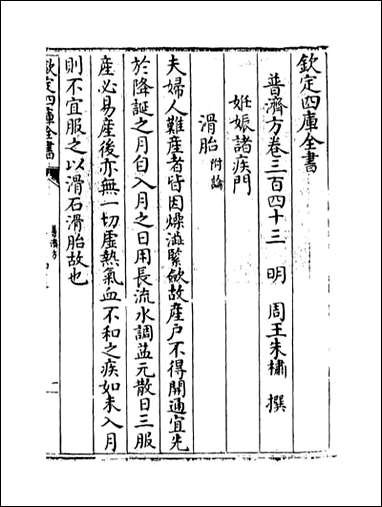 欽定四庫全書
普濟方卷三百四十三　明　周王朱橚　撰
姙娠諸疾門
滑胎附論
夫婦人難産者皆因燥澁緊斂故産戶不得開通宜先
於降誕之月自入月之日用長流水調益元散日三服
産必易産後亦無一切虛熱氣血不和之疾如未入月
則不宜服之以滑石滑胎故也
欽定四庫全書
普濟方